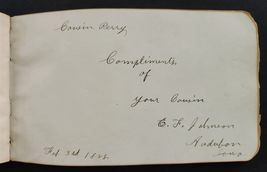 Cousin Perry
Compliments
of
Your Cousin
E. F. Johnson
Audubon
Iowa
Feb 3d